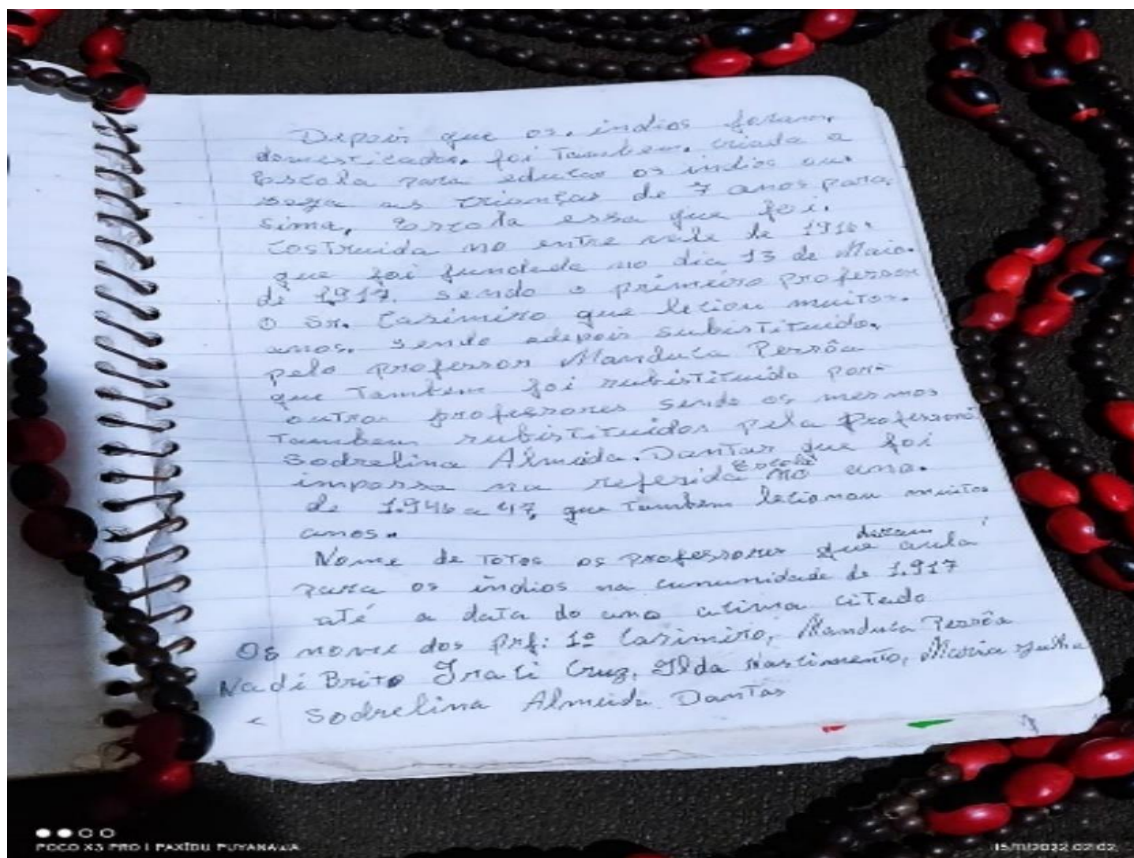 Depois que os. indios foram,
domesticados. foi Tambem. criada a
Escola para educar os indios ou.
seja as crianças de 7 anos para,
sima, Escola essa que foi.
CosTruida no entre vale de 1916.
que foi fundada no dia 13 de Maio.
de 1.917. sendo o primeiro professor
O Sr. Casimiro que leciou muitos.
anos. sendo adepois subistituido.
pelo professor Manduca Persôa
que Tambem foi subistituido por
outros professores sendo os mesmos
Tambem subisTiTuidos pela Professora
Sodrelina Almeida. Dantas que foi
impossa na referida Escola no ano.
de 1.946 a 47, que Tambem lecionou muitos
anos.
Nome de ToTos os professores que derram aula
para os indios na cumunidade de 1.917
até a data do ano acima citado
Os nome dos Prf: 1º Casimiro, Manduca Persôa
Nadi Brito Iraci Cruz, Ilda Nascimento, Maria Julha
e Sodrelina Almeida Dantas
POCO X3 PRO | PAXĨDU PUYANAWA
15/11/2022 02:02